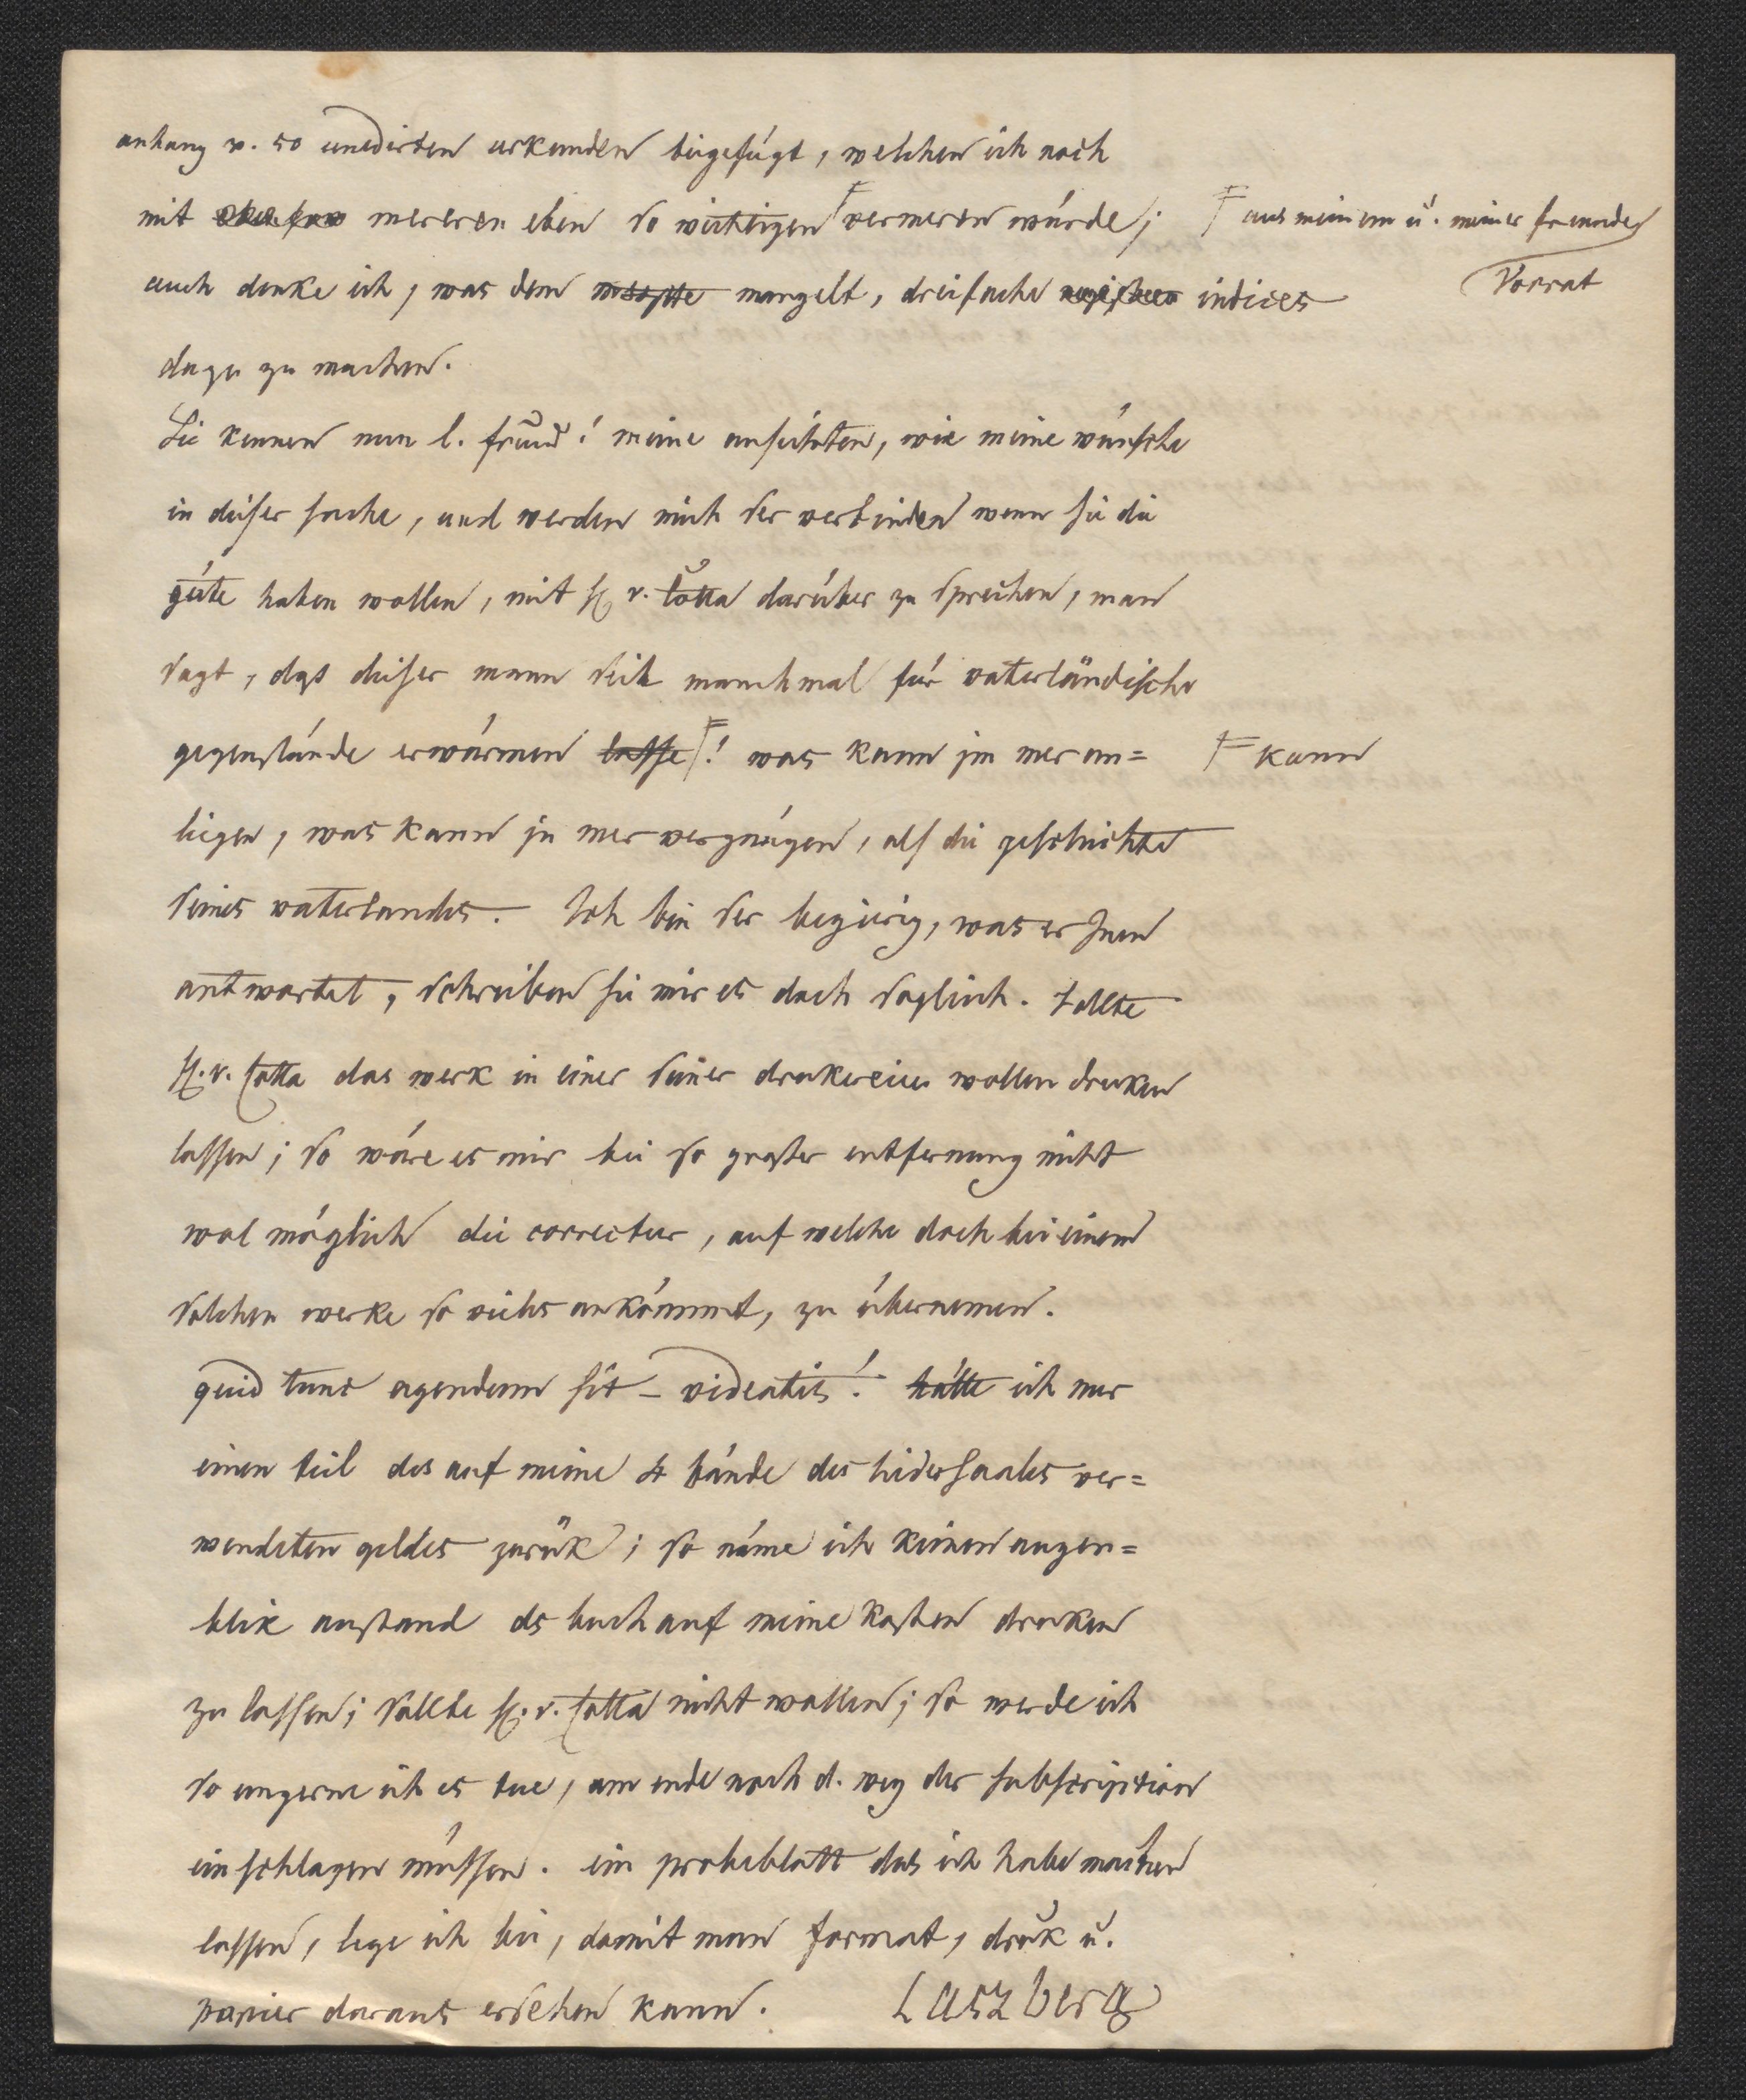 anhang v. 50 unedirten urkunden beigefügt, welchen ich noch
mit mereren eben so wichtigen vermeren würde; aus meinem u. meiner freunde
auch denke ich, was dem mangelt, dreifache indices Vorrat
dazu zu machen.
Sie kennen nun l. freund! meine ansichten, wie meine wünsche
in diser sache, und werden mich ser verbinden wenn sie die
güte haben wollen, mit H. v. Cotta darüber zu sprechen, man
sagt, dass diser mann sich manchmal für vaterländische
gegenstände erwärmen lasse! was kann im mer an= kann
ligen, was kann in mer vergnügen, als die geschichte
seines vaterlandes. Ich bin ser begirig, was er Inen
antwortet, schreiben sie mir es doch soglich. sollte
H. v. Cotta das werk in einer seiner drukereien wollen druken
lassen; so wäre es mir bei so grosser entfernung nicht
wol möglich die correctur, auf welche doch bei einem
solchen werke so viles ankömmt, zu übernemen.
quid tunc agendum sit – videatis! hätte ich nur
einen teil des auf meine 4 bände des lidersaales ver=
wendeten geldes zurük; so näme ich keinen augen=
blik anstand ds buch auf meine kosten druken
zu lassen; sollte H. v. Cotta nicht wollen; so werde ich
so ungerne ich es tue, am ende noch d. weg der subscription
einschlagen müssen. ein probeblatt das ich habe machen
lassen, lege ich bei, damit man format, druk u.
papier daraus ersehen kann. Laszberg